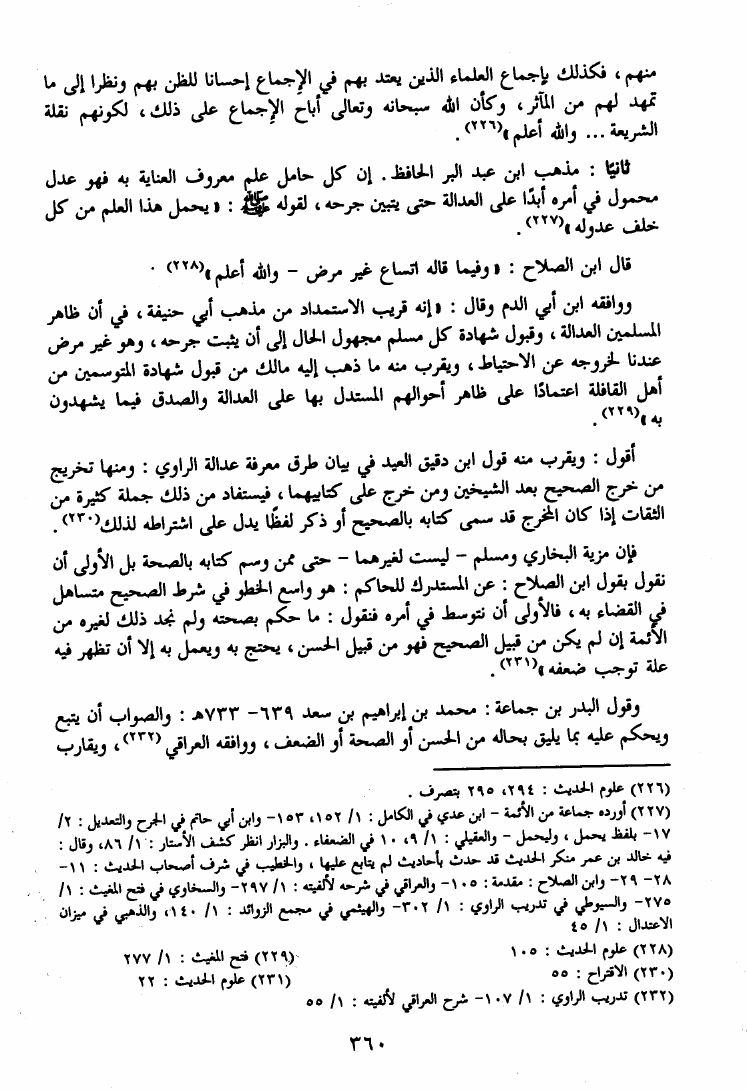 منهم ، فكذلك بإجماع العلماء الذين يعتد بهم في الإجماع إحسانا للظن بهم ونظرا إلى ما
تمهد لهم من المآثر ، وكأن الله سبحانه وتعالى أباح الإجماع على ذلك ، لكونهم نقلة
الشريعة ... والله أعلم »(٢٢٦) .
ثانيًا : مذهب ابن عبد البر الحافظ . إن كل حامل علم معروف العناية به فهو عدل
محمول في أمره أبدًا على العدالة حتى يتبين جرحه ، لقوله ﷺ : « يحمل هذا العلم من كل
خلف عدوله »(٢٢٧) .
قال ابن الصلاح : « وفيما قاله اتساع غير مرض – والله أعلم »(٢٢٨) .
ووافقه ابن أبي الدم وقال : « إنه قريب الاستمداد من مذهب أبي حنيفة ، في أن ظاهر
المسلمين العدالة ، وقبول شهادة كل مسلم مجهول الحال إلى أن يثبت جرحه ، وهو غير مرض
عندنا لخروجه عن الاحتياط ، ويقرب منه ما ذهب إليه مالك من قبول شهادة المتوسمين من
أهل القافلة اعتمادًا على ظاهر أحوالهم المستدل بها على العدالة والصدق فيما يشهدون
به »(٢٢٩) .
أقول : ويقرب منه قول ابن دقيق العيد في بيان طرق معرفة عدالة الراوي : ومنها تخريج
من خرج الصحيح بعد الشيخين ومن خرج على كتابيهما ، فيستفاد من ذلك جملة كثيرة من
الثقات إذا كان المخرج قد سمى كتابه بالصحيح أو ذكر لفظًا يدل على اشتراطه لذلك(٢٣٠) .
فإن مزية البخاري ومسلم – ليست لغيرهما – حتى ممن وسم كتابه بالصحة بل الأولى أن
نقول بقول ابن الصلاح : عن المستدرك للحاكم : هو واسع الخطو في شرط الصحيح متساهل
في القضاء به ، فالأولى أن نتوسط في أمره فنقول : ما حكم بصحته ولم نجد ذلك لغيره من
الأئمة إن لم يكن من قبيل الصحيح فهو من قبيل الحسن ، يحتج به ويعمل به إلا أن تظهر فيه
علة توجب ضعفه »(٢٣١) .
وقول البدر بن جماعة : محمد بن إبراهيم بن سعد ٦٣٩– ٧٣٣هـ : والصواب أن يتبع
ويحكم عليه بما يليق بحاله من الحسن أو الصحة أو الضعف ، ووافقه العراقي(٢٣٢) ، ويقارب
(٢٢٦) علوم الحديث : ٢٩٤، ٢٩٥ بتصرف .
(٢٢٧) أورده جماعة من الأئمة – ابن عدي في الكامل : ١/ ١٥٢، ١٥٣– وابن أبي حاتم في الجرح والتعديل : ٢/
١٧– بلفظ يحمل ، وليحمل – والعقيلي : ١/ ٩، ١٠ في الضعفاء . والبزار انظر كشف الأستار : ١/ ٨٦، وقال :
فيه خالد بن عمر منكر الحديث قد حدث بأحاديث لم يتابع عليها ، والخطيب في شرف أصحاب الحديث : ١١–
٢٨– ٢٩– وابن الصلاح : مقدمة : ١٠٥– والعراقي في شرحه لألفيته : ١/ ٢٩٧– والسخاوي في فتح المغيث : ١/
٢٧٥– والسيوطي في تدريب الراوي : ١/ ٣٠٢– والهيثمي في مجمع الزوائد : ١/ ١٤٠، والذهبي في ميزان
الاعتدال : ١/ ٤٥
(٢٢٨) علوم الحديث : ١٠٥ (٢٢٩) فتح المغيث : ١/ ٢٧٧
(٢٣٠) الاقتراح : ٥٥ (٢٣١) علوم الحديث : ٢٢
(٢٣٢) تدريب الراوي : ١/ ١٠٧– شرح العراقي لألفيته : ١/ ٥٥
٣٦٠